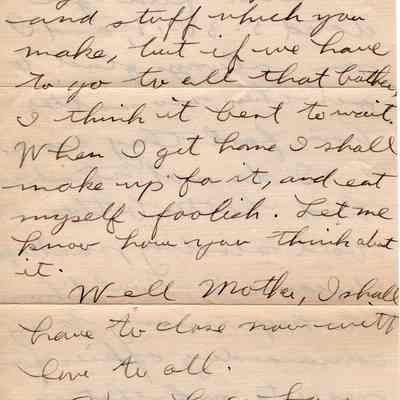 and stuff which you
make, but if we have
to go to all that bother,
I think it best to wait.
When I get home I shall
make up for it, and eat
myself foolish. Let me
know how you think about
it.
Well Mother, I shall
have to close now with
love to all.